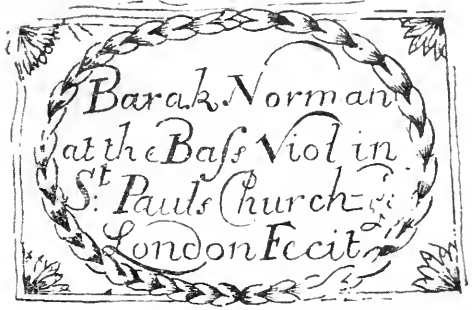 Barak Norman
at the Baſs Viol in
St. Pauls Church=
London Fecit